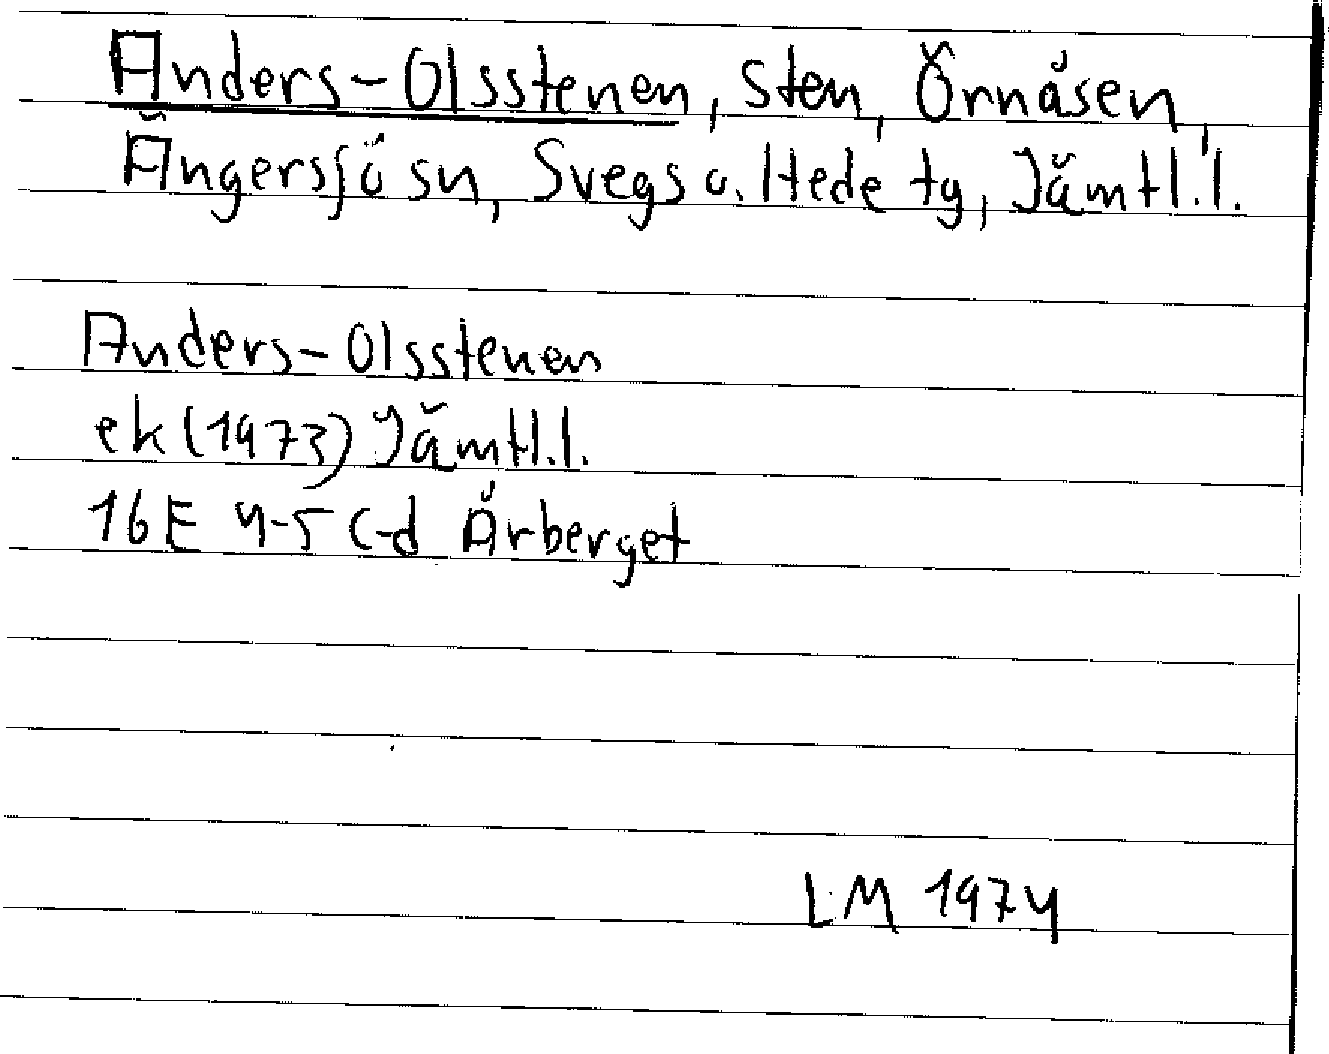 Anders-Olsstenen, sten, Örnåsen,
Ängersjö sn, Svegs o. Hede tg, Jämtl.l.
Anders-Olsstenen
ek (1973) Jämtl.l.
16E 4-5 c-d Årberget
LM 1974